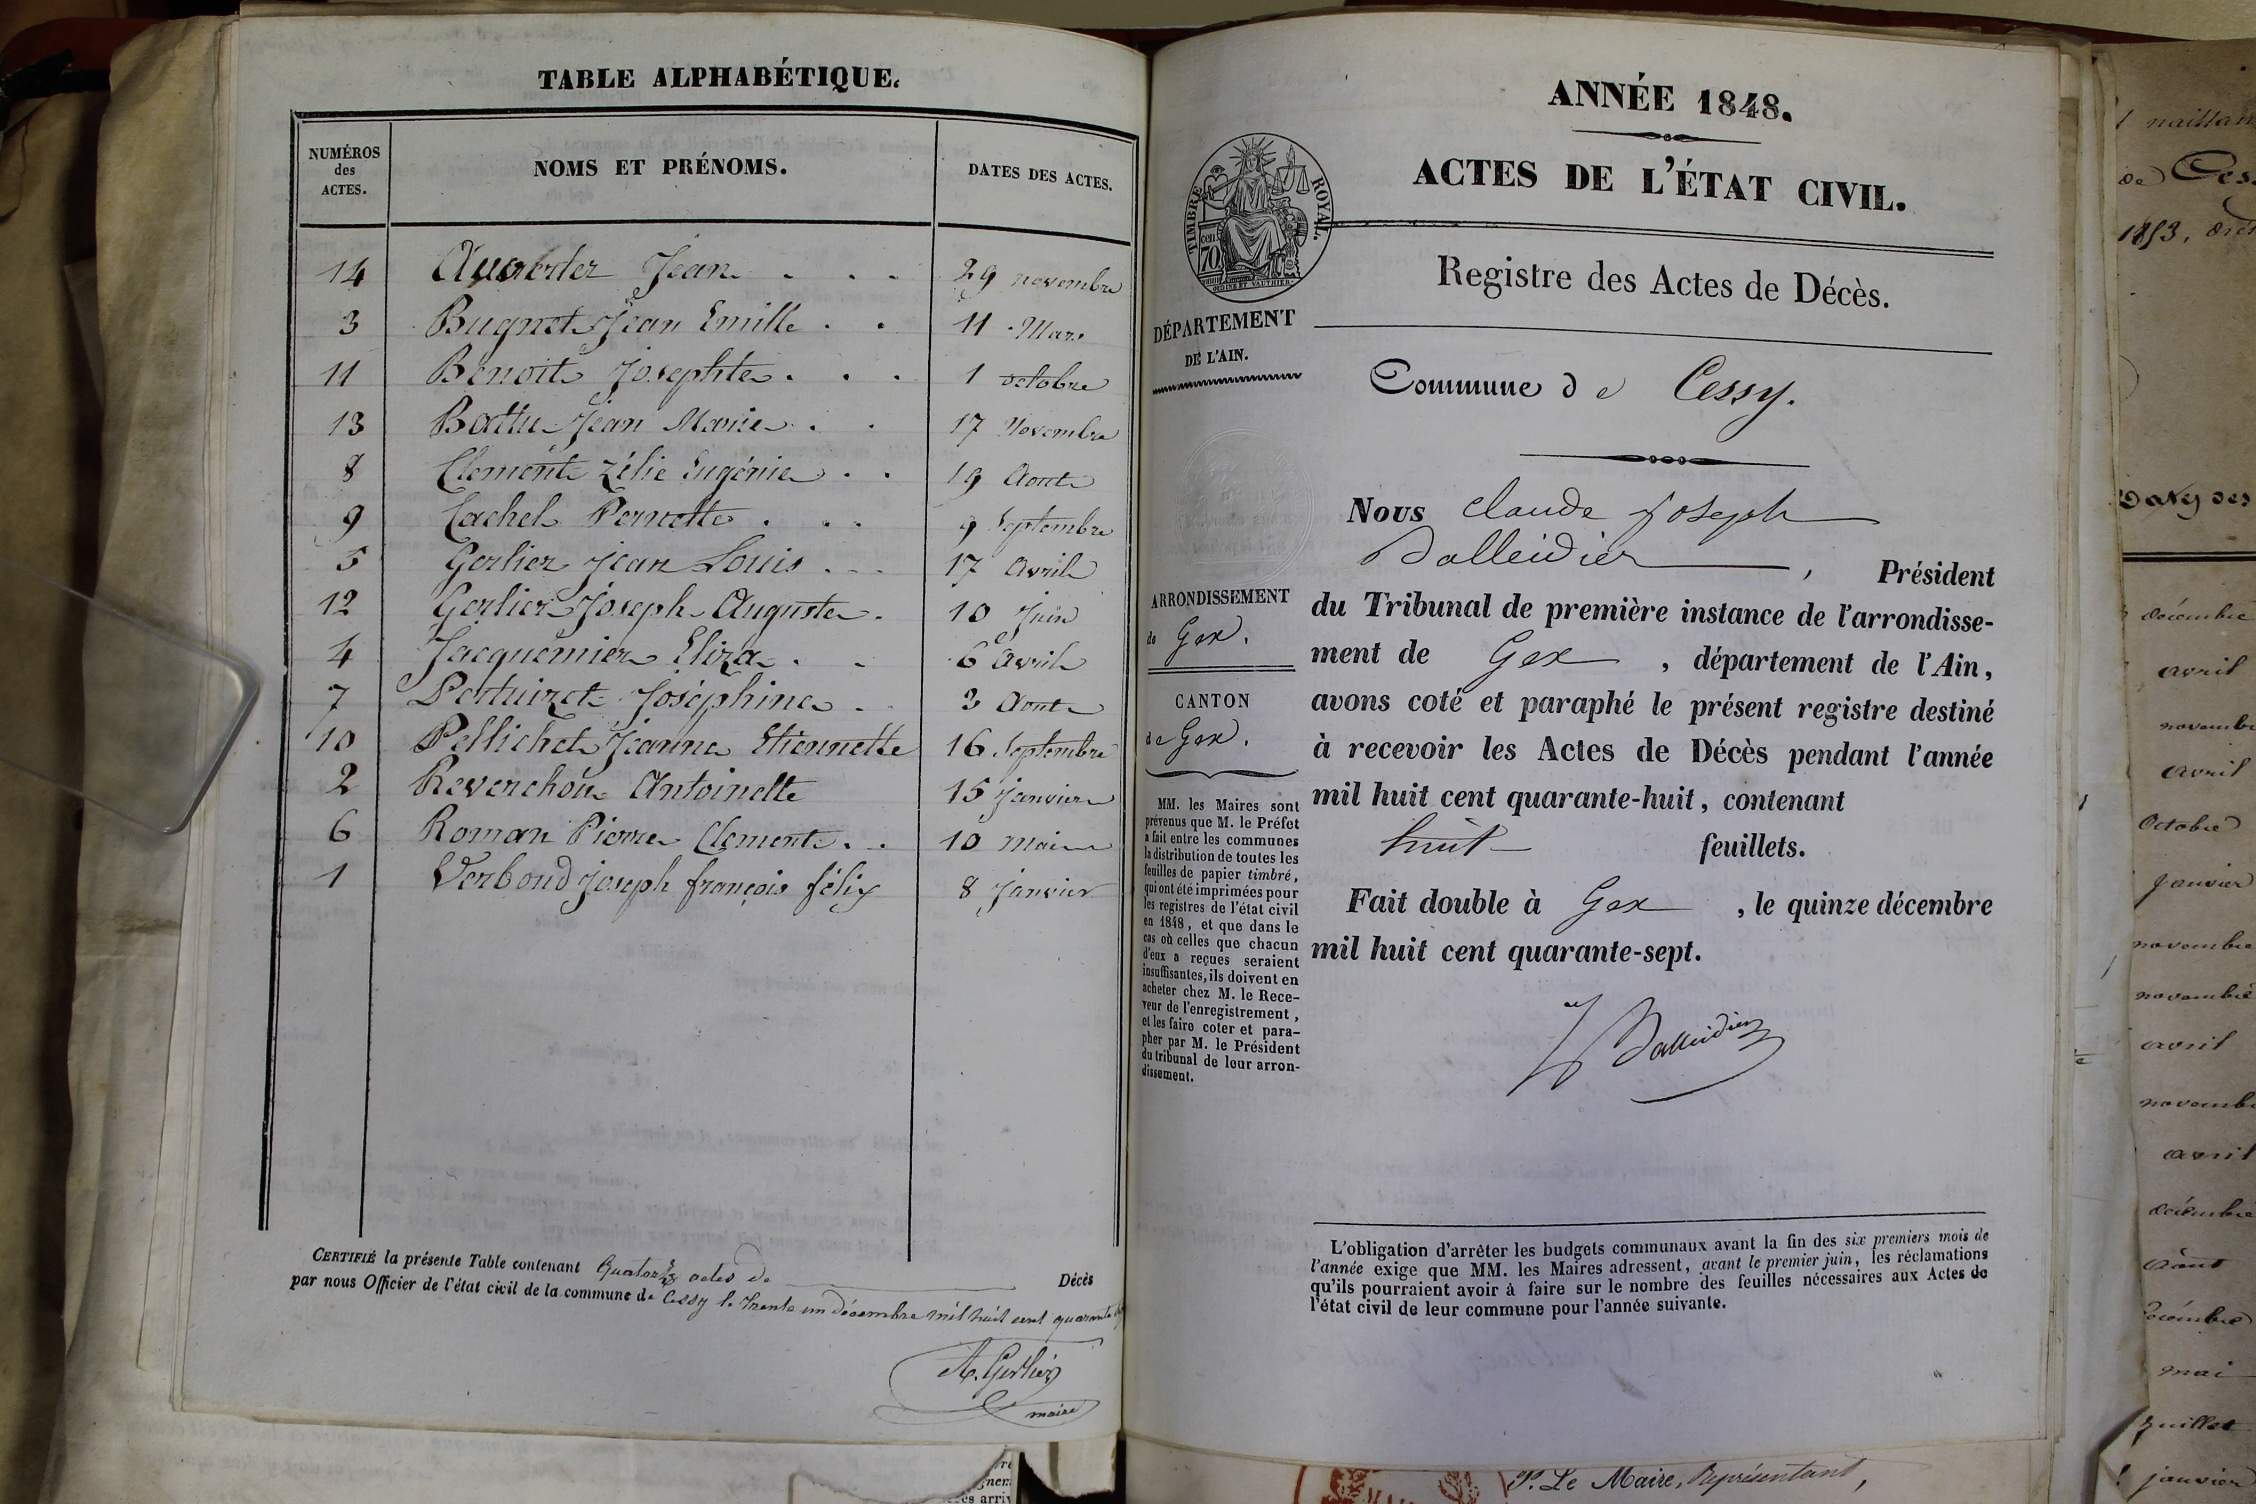 TABLE ALPHABÉTIQUE.
NUMÉROS des ACTES. NOMS ET PRÉNOMS. DATES DES ACTES.
14 Jean . . . 29 novembre
3 Bugnet Jean Emille . . 11 Mars
11 Benoit Josephte . . . 1 octobre
13 Battu Jean Marie . . 17 Novembre
8 Clement Zélie Eugénie . . 19 Aout
9 Pernette . . . 9 Septembre
5 Gerlier Jean Louis . . . 17 Avril
12 Gerlier Joseph Auguste . 10 Juin
4 Jacquemier Eliza . . 6 Avril
7 Pertuizet Joséphine . . 3 Aout
10 Pellichet Jeanne Etiennette 16 Septembre
2 Reverchon Antoinette 15 Janvier
6 Roman Pierre Clement . . 10 mai
1 Verboud Joseph françois félix 8 Janvier
CERTIFIÉ la présente Table contenant Quatorze actes de Décès
par nous Officier de l'état civil de la commune de Cessy le trente un décembre mil huit cent quarante
A. Gerlier
maire
ANNÉE 1848.
ACTES DE L'ÉTAT CIVIL.
TIMBRE ROYAL.
cen.
70
Registre des Actes de Décès.
DÉPARTEMENT
DE L'AIN.
Commune de Cessy.
Nous Claude Joseph
Balleidier , Président
du Tribunal de première instance de l'arrondisse-
ment de Gex , département de l'Ain,
avons coté et paraphé le présent registre destiné
à recevoir les Actes de Décès pendant l'année
mil huit cent quarante-huit, contenant
huit feuillets.
Fait double à Gex , le quinze décembre
mil huit cent quarante-sept.
Balleidier
ARRONDISSEMENT
de Gex.
CANTON
de Gex.
MM. les Maires sont
prévenus que M. le Préfet
a fait entre les communes
la distribution de toutes les
feuilles de papier timbré,
qui ont été imprimées pour
les registres de l'état civil
en 1848, et que dans le
cas où celles que chacun
d'eux a reçues seraient
insuffisantes, ils doivent en
acheter chez M. le Rece-
veur de l'enregistrement,
et les faire coter et para-
pher par M. le Président
du tribunal de leur arron-
dissement.
L'obligation d'arrêter les budgets communaux avant la fin des six premiers mois de
l'année exige que MM. les Maires adressent, avant le premier juin, les réclamations
qu'ils pourraient avoir à faire sur le nombre des feuilles nécessaires aux Actes de
l'état civil de leur commune pour l'année suivante.
P. Le Maire, Représentant,
de
1853,
décembre
avril
novembre
avril
Octobre
janvier
novembre
novembre
avril
novembre
avril
décembre
août
Décembre
mai
Juillet
janvier